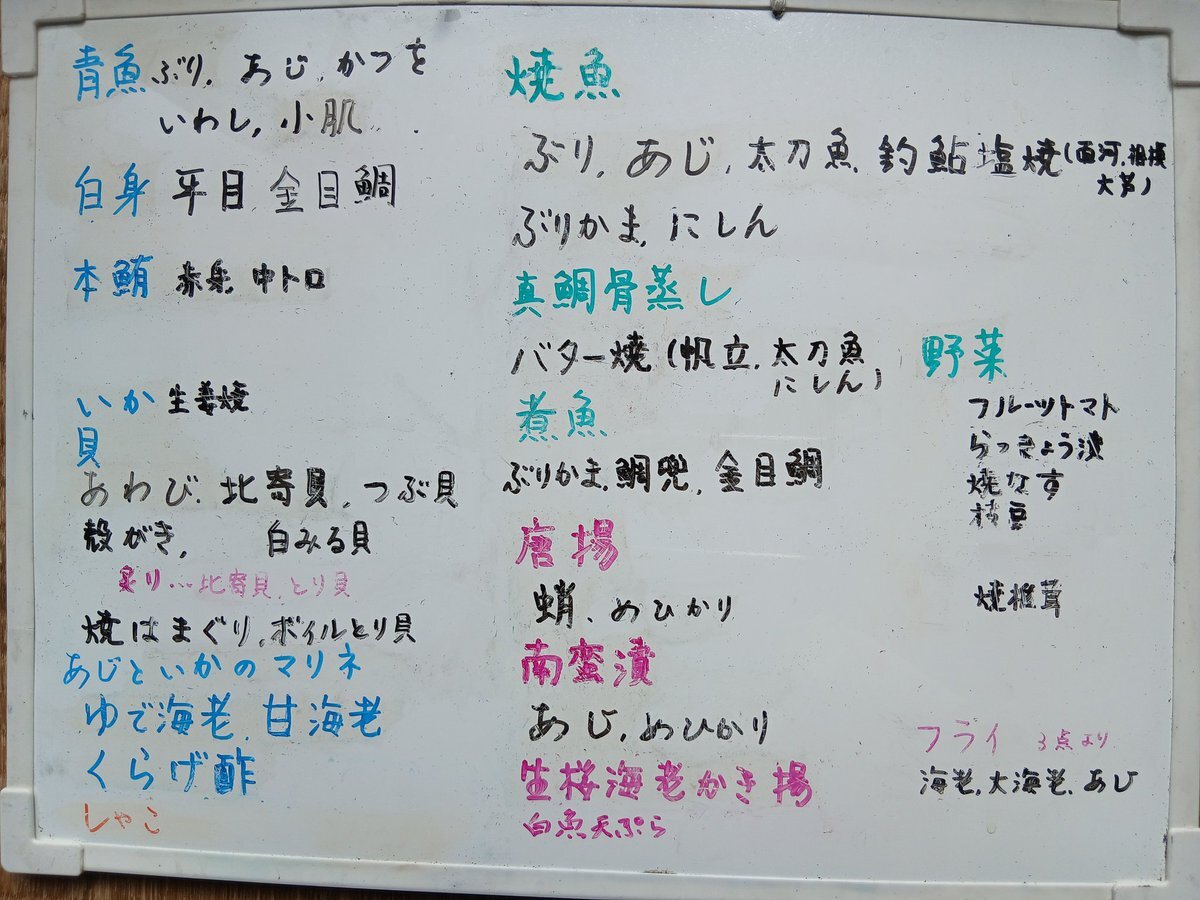 青魚 ぶり、あじ、かつを
いわし、小肌
白身 平目 金目鯛
本鮪 赤身、中トロ
いか 生姜焼
貝
あわび、北寄貝、つぶ貝
殻がき、 白みる貝
炙り…北寄貝、とり貝
焼はまぐり、ボイルとり貝
あじといかのマリネ
ゆで海老、甘海老
くらげ酢
しゃこ
焼魚
ぶり、あじ、太刀魚 釣鮎塩焼(面河、相模
大芦)
ぶりかま、にしん
真鯛骨蒸し
バター焼(帆立、太刀魚
にしん)
煮魚
ぶりかま、鯛兜、金目鯛
唐揚
蛸、めひかり
南蛮漬
あじ、めひかり
生桜海老かき揚
白魚天ぷら
野菜
フルーツトマト
らっきょう漬
焼なす
枝豆
焼椎茸
フライ 3点より
海老、大海老、あじ